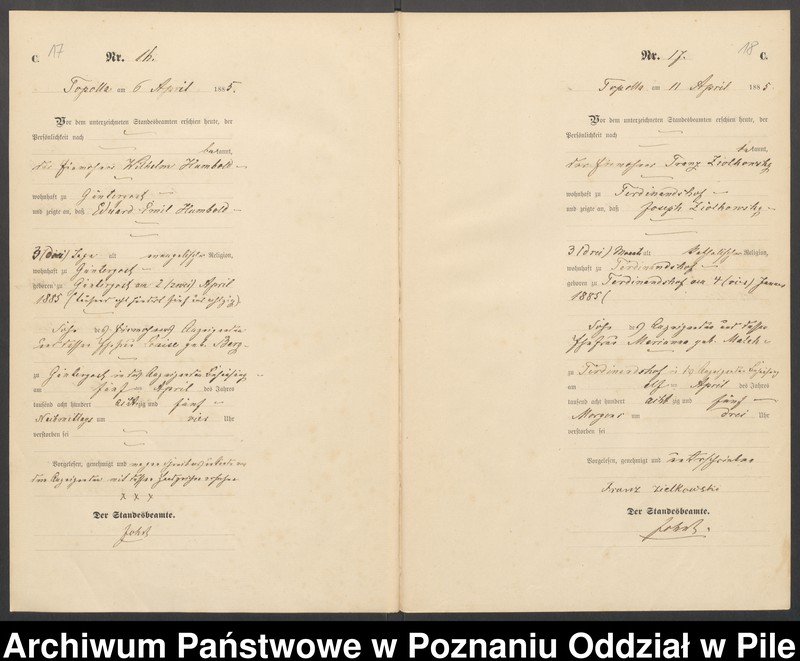 C. 17 Nr. 16.
Topolla am 6 April 1885.
Vor dem unterzeichneten Standesbeamten erschien heute, der
Persönlichkeit nach
bekannt,
der Einwohner Wilhelm Humbold
wohnhaft zu Güntergost
und zeigte an, daß Eduard Emil Humbold
3 (drei) Tage alt evangelischer Religion,
wohnhaft zu Güntergost
geboren zu Güntergost am 2 (zwei) April
1885 (tausend acht hundert fünf und achtzig)
Sohn des Anzeigenden
und dessen Ehefrau Luise geb. Berg
zu Güntergost in des Anzeigenden Behausung
am fünf April des Jahres
tausend acht hundert achtzig und fünf
Nachmittags um vier Uhr
verstorben sei
Vorgelesen, genehmigt und wegen
dem Anzeigenden mit dessen Handzeichen versehen
x x x
Der Standesbeamte.
Nr. 17. 18 C.
Topolla am 11 April 1885
Vor dem unterzeichneten Standesbeamten erschien heute, der
Persönlichkeit nach
bekannt,
der Einwohner Franz Ziolkowsky
wohnhaft zu Ferdinandshof
und zeigte an, daß Joseph Ziolkowsky
3 (drei) Monat alt katholischer Religion,
wohnhaft zu Ferdinandshof
geboren zu Ferdinandshof am 4 (vier) Januar
1885 (
Sohn des Anzeigenden und dessen
Ehefrau Marianna geb. Malek
zu Ferdinandshof in des Anzeigenden Behausung
am elf April des Jahres
tausend acht hundert achtzig und fünf
Morgens um drei Uhr
verstorben sei
Vorgelesen, genehmigt und unterschrieben
Franz Zielkowski
Der Standesbeamte.
Archiwum Państwowe w Poznaniu Oddział w Pile